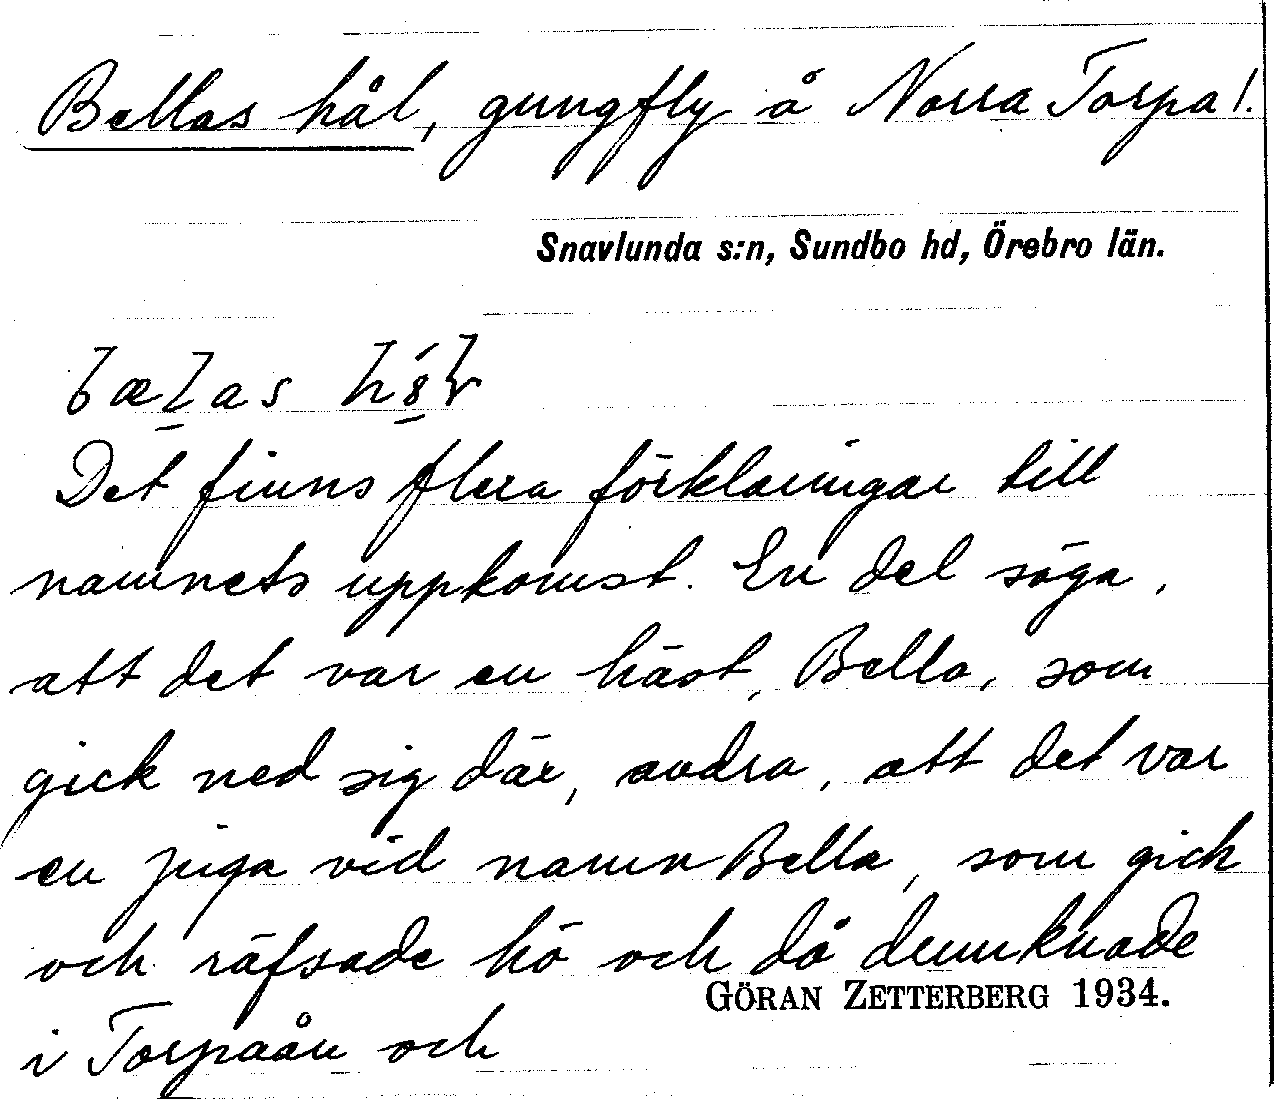 Bellas hål, gungfly å Norra Torpa l.
Snavlunda s:n, Sundbo hd, Örebro län.
Det finns flera förklaringar till
namnets uppkomst. En del säga,
att det var en häst, Bella, som
gick ned sig där, andra, att det var
en piga vid namn Bella, som gick
och räfsade hö och då drunknade
GÖRAN ZETTERBERG 1934.
i Torpaån och